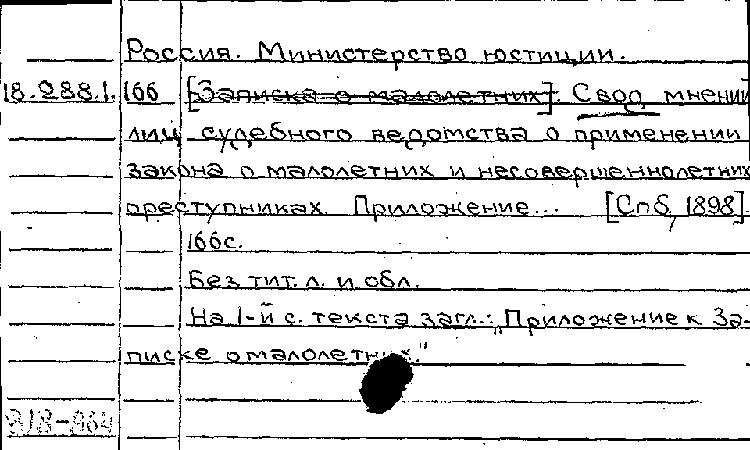 Россия. Министерство юстиции.
18.288.1.166 [Записка о малолетних]. Свод мнений
лиц судебного ведомства о применении
закона о малолетних и несовершеннолетних
преступниках. Приложение... [Спб, 1898].
166с.
Без тит. л. и обл.
На 1-й с. текста загл.: „Приложение к За-
писке о малолетних."